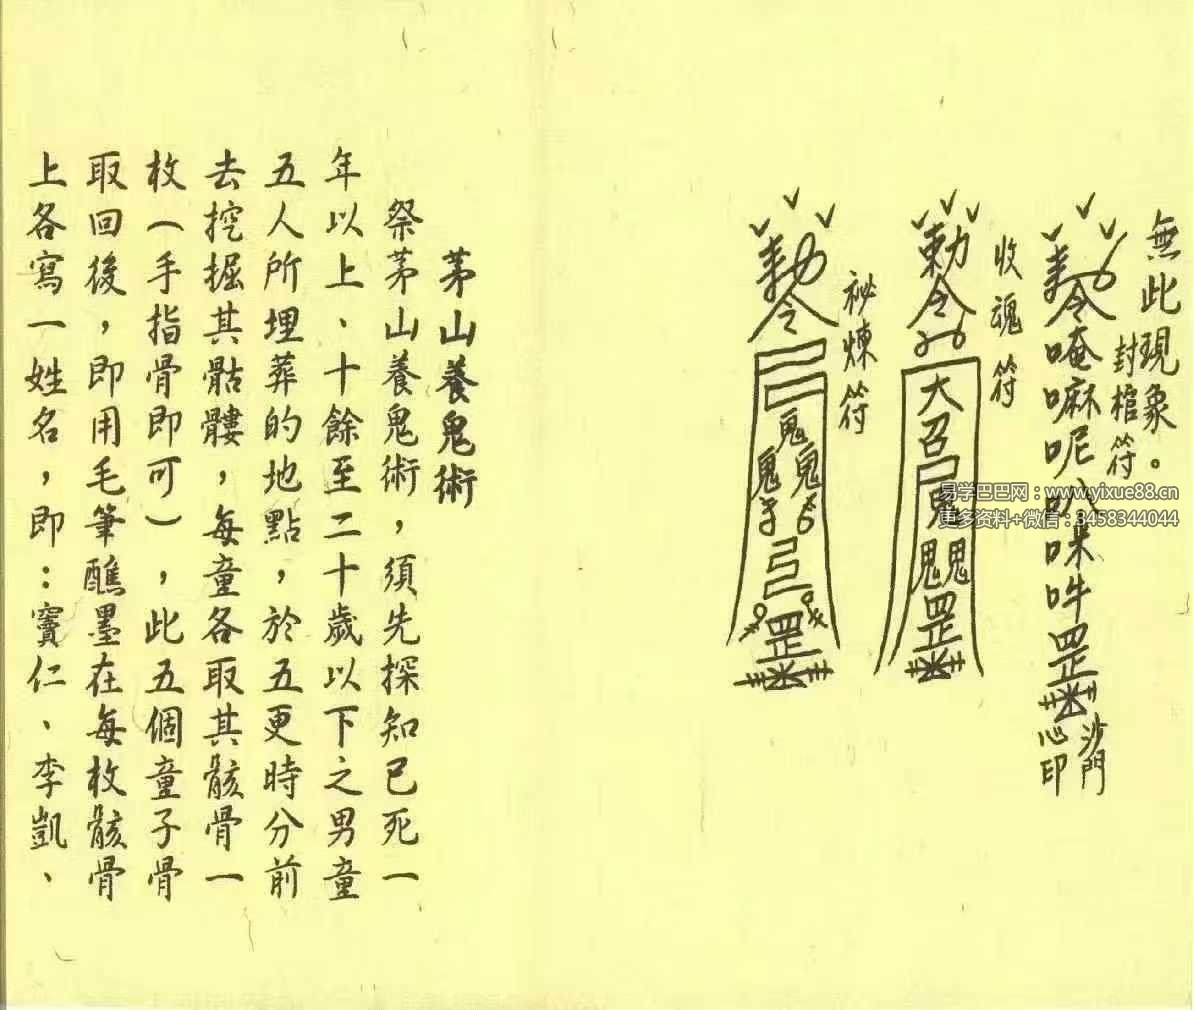 無此現象。
封棺符
勅令唵嘛呢叭咪吽罡
沙門
心印
收魂符
勅令
大召
鬼
鬼鬼
罡
祕煉符
勅令
鬼
鬼鬼
罡
易学巴巴网:www.yixue88.cn
更多资料+微信:3458344044
茅山養鬼術
祭茅山養鬼術，須先探知已死一
年以上、十餘至二十歲以下之男童
五人所埋葬的地點，於五更時分前
去挖掘其骷髏，每童各取其骸骨一
枚(手指骨即可)，此五個童子骨
取回後，即用毛筆醮墨在每枚骸骨
上各寫一姓名，即：竇仁、李凱、